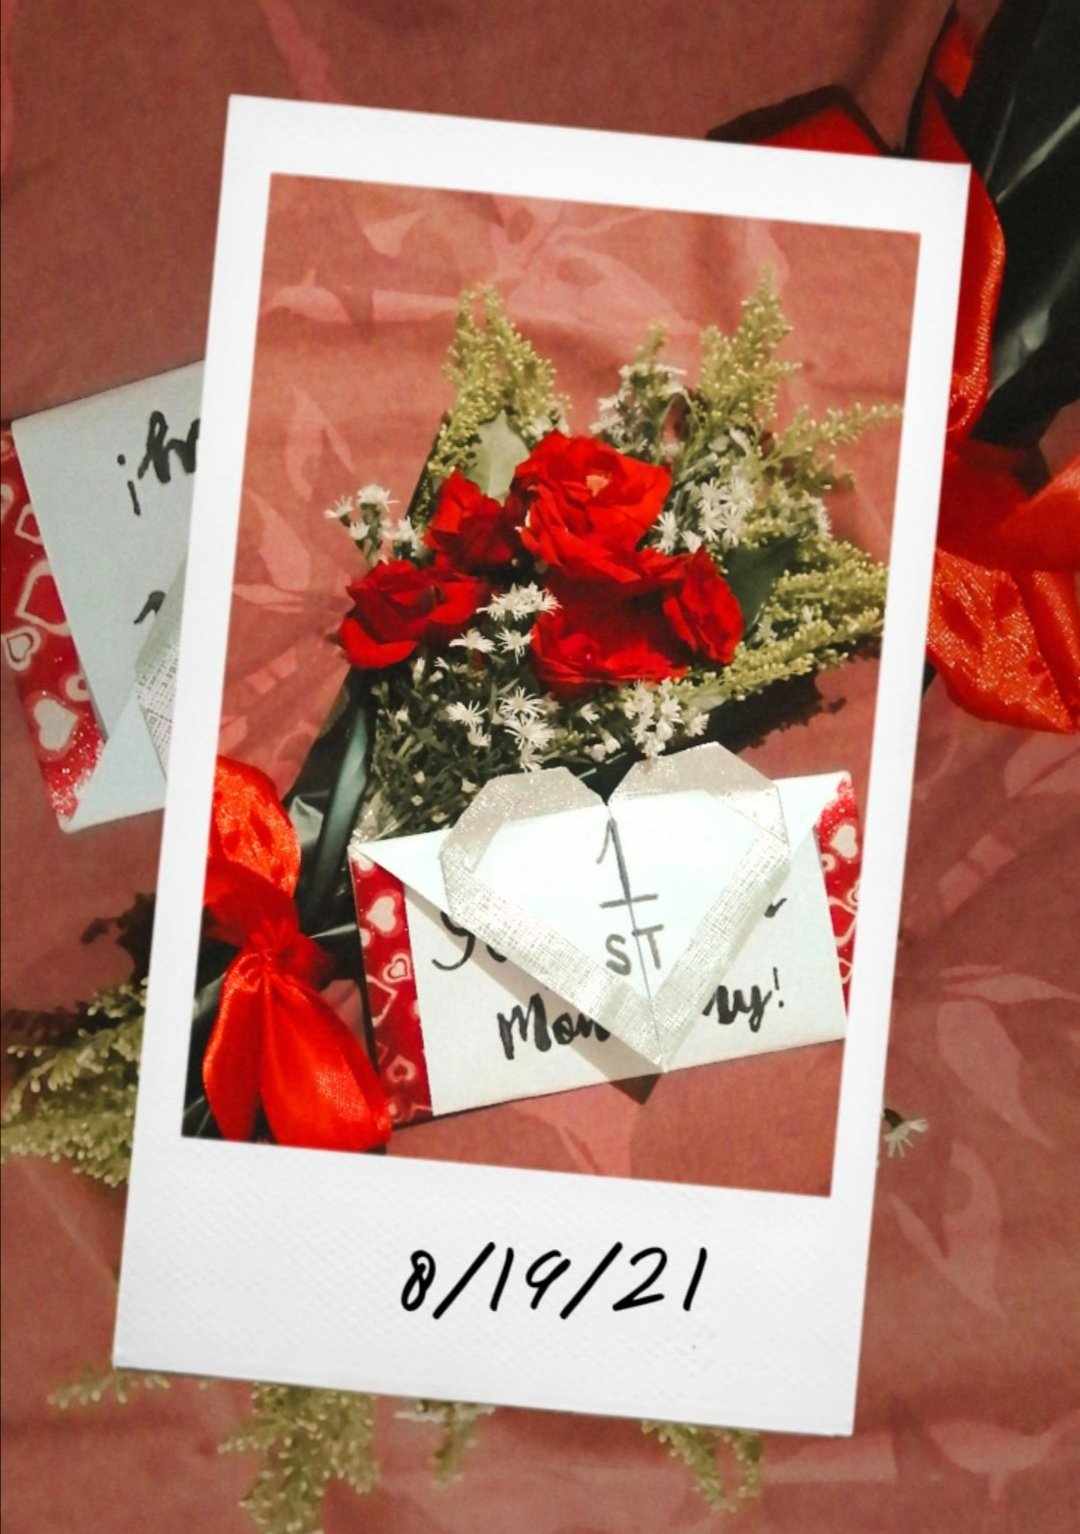 1
ST
Mon ry!
8/19/21